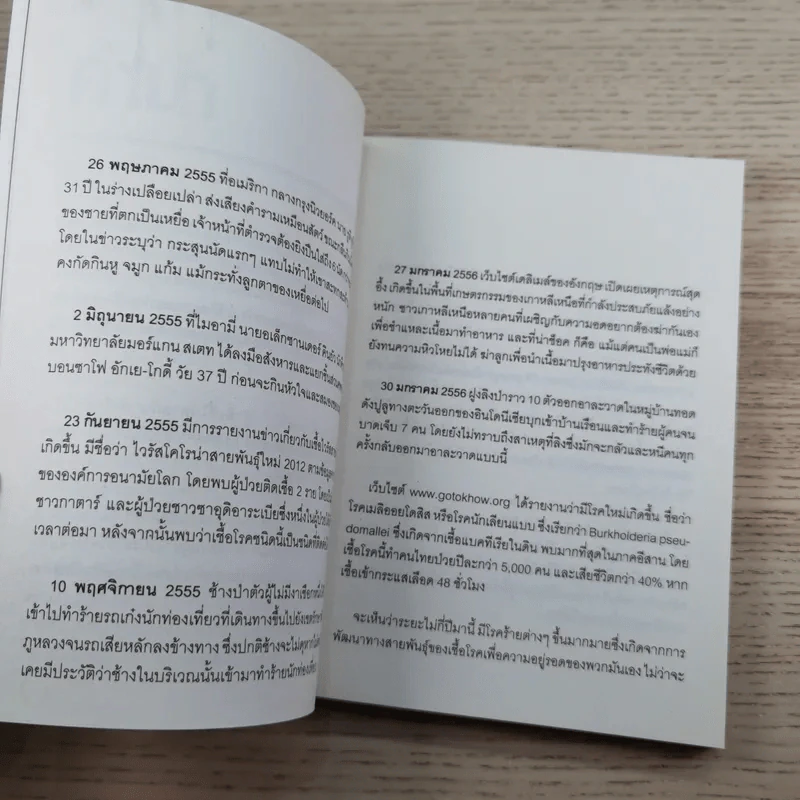 26 พฤษภาคม 2555 ที่อเมริกา กลางกรุงนิวยอร์ค นาย
31 ปี ในร่างเปลือยเปล่า ส่งเสียงคำรามเหมือนสัตว์
ของชายที่ตกเป็นเหยื่อ เจ้าหน้าที่ตำรวจต้องยิงปืนใส่ถึง
โดยในข่าวระบุว่า กระสุนนัดแรกๆ แทบไม่ทำให้เขา
คงกัดกินหู จมูก แก้ม แม้กระทั่งลูกตาของเหยื่อต่อไป
2 มิถุนายน 2555 ที่ไมอามี่ นายอเล็กซานเดอร์ คินยัว
มหาวิทยาลัยมอร์แกน สเตท ได้ลงมือสังหารและแยกชิ้น
บอนซาโฟ อักเย-โกดี้ วัย 37 ปี ก่อนจะกินหัวใจและสมอง
23 กันยายน 2555 มีการรายงานข่าวเกี่ยวกับเชื้อไวรัส
เกิดขึ้น มีชื่อว่า ไวรัสโคโรน่าสายพันธุ์ใหม่ 2012 ตามข้อมูล
ขององค์การอนามัยโลก โดยพบผู้ป่วยติดเชื้อ 2 ราย
ชาวกาตาร์ และผู้ป่วยชาวซาอุดิอาระเบียซึ่งหนึ่งในผู้ป่วย
เวลาต่อมา หลังจากนั้นพบว่าเชื้อโรคชนิดนี้เป็นชนิดที่
10 พฤศจิกายน 2555 ช้างป่าตัวผู้ไม่มีงาเชือกหนึ่ง
เข้าไปทำร้ายรถเก๋งนักท่องเที่ยวที่เดินทางขึ้นไปยังเขต
ภูหลวงจนรถเสียหลักลงข้างทาง ซึ่งปกติช้างจะไม่ดุ
เคยมีประวัติว่าช้างในบริเวณนั้นเข้ามาทำร้ายนักท่อง
27 มกราคม 2556 เว็บไซต์เดลิเมล์ของอังกฤษ เปิดเผยเหตุการณ์สุด
อึ้ง เกิดขึ้นในพื้นที่เกษตรกรรมของเกาหลีเหนือที่กำลังประสบภัยแล้งอย่าง
หนัก ชาวเกาหลีเหนือหลายคนที่เผชิญกับความอดอยากต้องฆ่ากันเอง
เพื่อชำแหละเนื้อมาทำอาหาร และที่น่าช็อค ก็คือ แม้แต่คนเป็นพ่อแม่ก็
ยังทนความหิวโหยไม่ได้ ฆ่าลูกเพื่อนำเนื้อมาปรุงอาหารประทังชีวิตด้วย
30 มกราคม 2556 ฝูงลิงป่าราว 10 ตัวออกอาละวาดในหมู่บ้านทอด
ดังปูลูทางตะวันออกของอินโดนีเซียบุกเข้าบ้านเรือนและทำร้ายผู้คนจน
บาดเจ็บ 7 คน โดยยังไม่ทราบถึงสาเหตุที่ลิงซึ่งมักจะกลัวและหนีคนทุก
ครั้งกลับออกมาอาละวาดแบบนี้
เว็บไซต์ www.gotokhow.org ได้รายงานว่ามีโรคใหม่เกิดขึ้น ชื่อว่า
โรคเมลิออยโดสิส หรือโรคนักเลียนแบบ ซึ่งเรียกว่า Burkholderia pseu-
domallei ซึ่งเกิดจากเชื้อแบคทีเรียในดิน พบมากที่สุดในภาคอีสาน โดย
เชื้อโรคนี้ทำคนไทยป่วยปีละกว่า 5,000 คน และเสียชีวิตกว่า 40% หาก
เชื้อเข้ากระแสเลือด 48 ชั่วโมง
จะเห็นว่าระยะไม่กี่ปีมานี้ มีโรคร้ายต่างๆ ขึ้นมากมายซึ่งเกิดจากการ
พัฒนาทางสายพันธุ์ของเชื้อโรคเพื่อความอยู่รอดของพวกมันเอง ไม่ว่าจะ